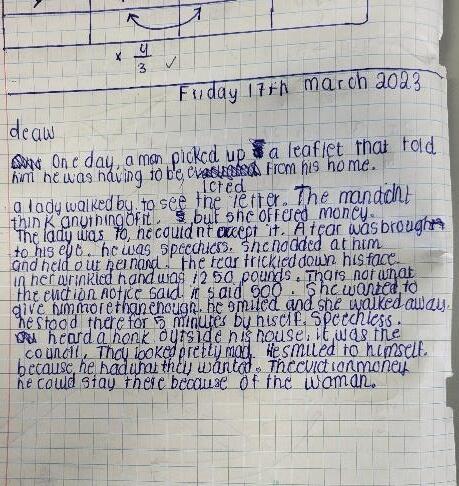 x 4/3 ✓
Friday 17th march 2023
deaw
One day, a man picked up a leaflet that told
him he was having to be, ev from his home.
icted
a lady walked by. to see the letter. The man didnt
think anything of it. but she offered money.
The lady was 70, he couldnt except it. A tear was brought
to his eye. he was speechless. She nodded at him
and held out her hand. the tear trickled down his face.
in her wrinkled hand was 1250 pounds. Thats not what
the eviction notice said. it said 500. She wanted to
give him more than enough. he smiled and she walked away.
he stood there for 5 minutes by hiself. Speechless.
heard a honk outside his house, it was the
council. They looked pretty mad. He smiled to himself.
because, he had what they wanted. The eviction money
he could stay there because of the woman.